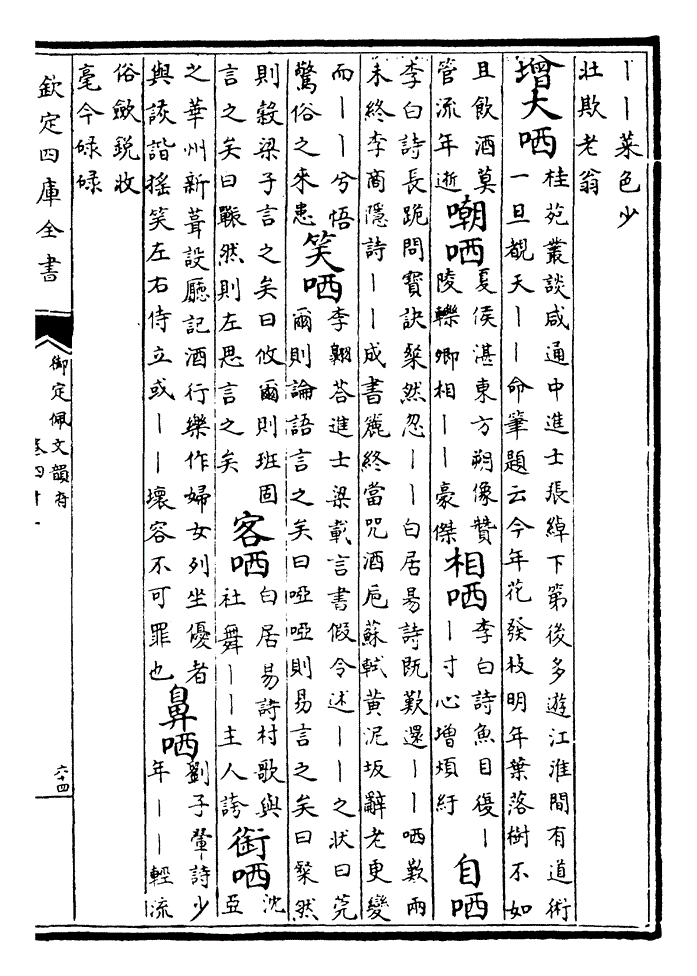 丨丨菜色少
壯欺老翁
增大哂
桂苑叢談咸通中進士張綽下第後多遊江淮間有道術
一旦覩天丨丨命筆題云今年花發枝明年葉落樹不如
且飲酒莫
管流年逝
嘲哂
夏侯湛東方朔像贊
陵轢卿相丨丨豪傑
相哂
李白詩魚目復丨
丨寸心增煩紆
自哂
李白詩長跪問寶訣粲然忽丨丨白居易詩既歎還丨丨哂歎兩
未終李商隱詩丨丨成書簏終當咒酒巵蘇軾黄泥坂辭老更變
而丨丨兮悟
驚俗之來患
笑哂
李翺荅進士梁載言書假令述丨丨之状曰莞
爾則論語言之矣曰啞啞則易言之矣曰粲然
則穀梁子言之矣曰攸爾則班固
言之矣曰囅然則左思言之矣
客哂
白居易詩村歌與
社舞丨丨主人誇
衒哂
沈
亞
之華州新葺設廳記酒行樂作婦女列坐優者
與詼諧揺笑左右侍立或丨丨壞容不可罪也
鼻哂
劉子翬詩少
年丨丨輕流
俗斂鋭收
毫今碌碌
欽定四庫全書
御定佩文韻府
卷四十一
六十四